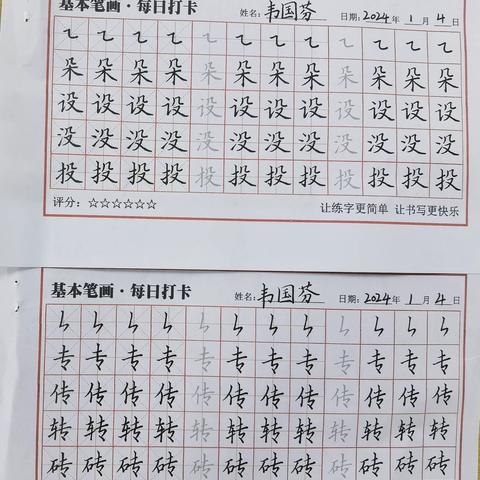 基本笔画·每日打卡 姓名:韦国芬 日期:2024年1月4日
㇈ ㇈ ㇈ ㇈ ㇈ ㇈ ㇈ ㇈ ㇈ ㇈ ㇈ ㇈
朵 朵 朵 朵 朵 朵 朵 朵 朵 朵 朵 朵
设 设 设 设 设 设 设 设 设 设 设 设
没 没 没 没 没 没 没 没 没 没 没 没
投 投 投 投 投 投 投 投 投 投 投 投
评分:☆☆☆☆☆☆ 让练字更简单 让书写更快乐
基本笔画·每日打卡 姓名:韦国芬 日期:2024年1月4日
专 专 专 专 专 专 专 专 专 专 专 专
传 传 传 传 传 传 传 传 传 传 传 传
转 转 转 转 转 转 转 转 转 转 转 转
砖 砖 砖 砖 砖 砖 砖 砖 砖 砖 砖 砖